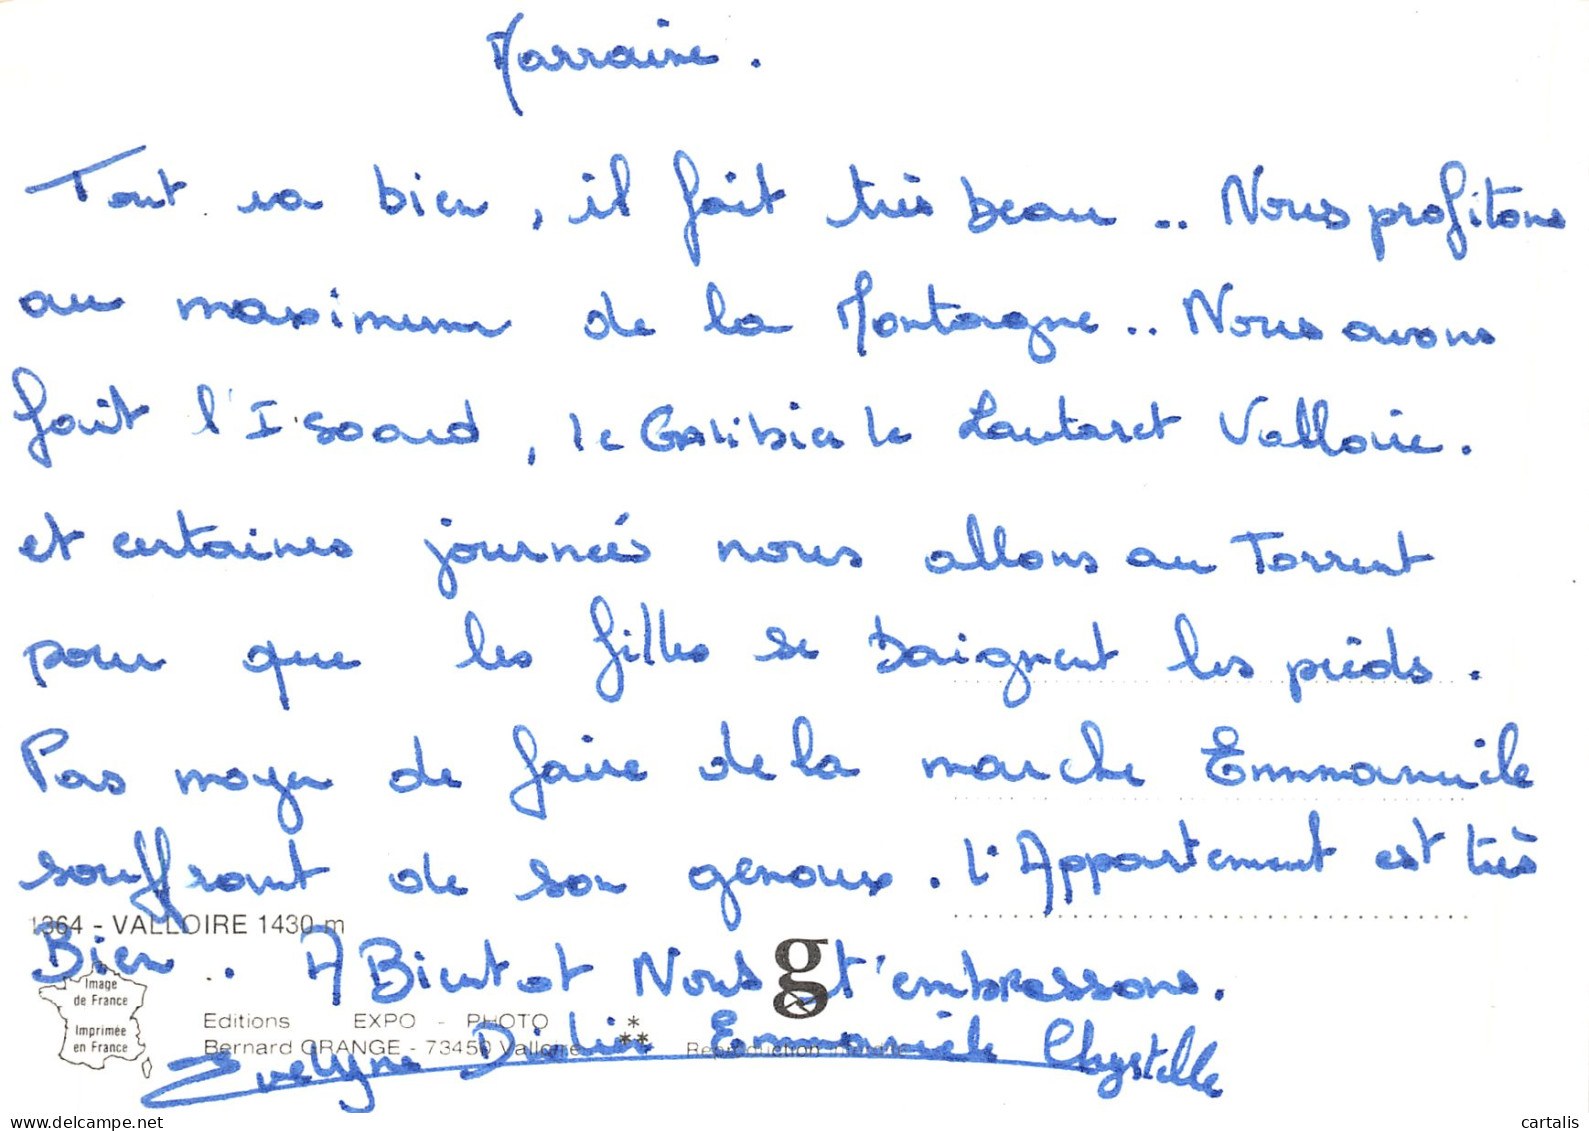 Marraine.
Tout va bien, il fait très beau.. Nous profitons
au maximum de la Montagne.. Nous avons
fait l'Isoard, le Galibier le Lautaret Valloire.
et certaines journées nous allons au Torrent
pour que les filles se baignent les pieds.
Pas moyen de faire de la marche Emmanuele
souffrant de son genoux. L'Appartement est très
1364 - VALLOIRE 1430 m
Bien.. A Bientot Nous t'embrassons.
g
Image
de France
Imprimée
en France
Editions EXPO - PHOTO
Bernard GRANGE - 73450 Valloire
Reproduction interdite
Evelyne Didier Emmanuele Chrystelle
www.delcampe.net
cartalis